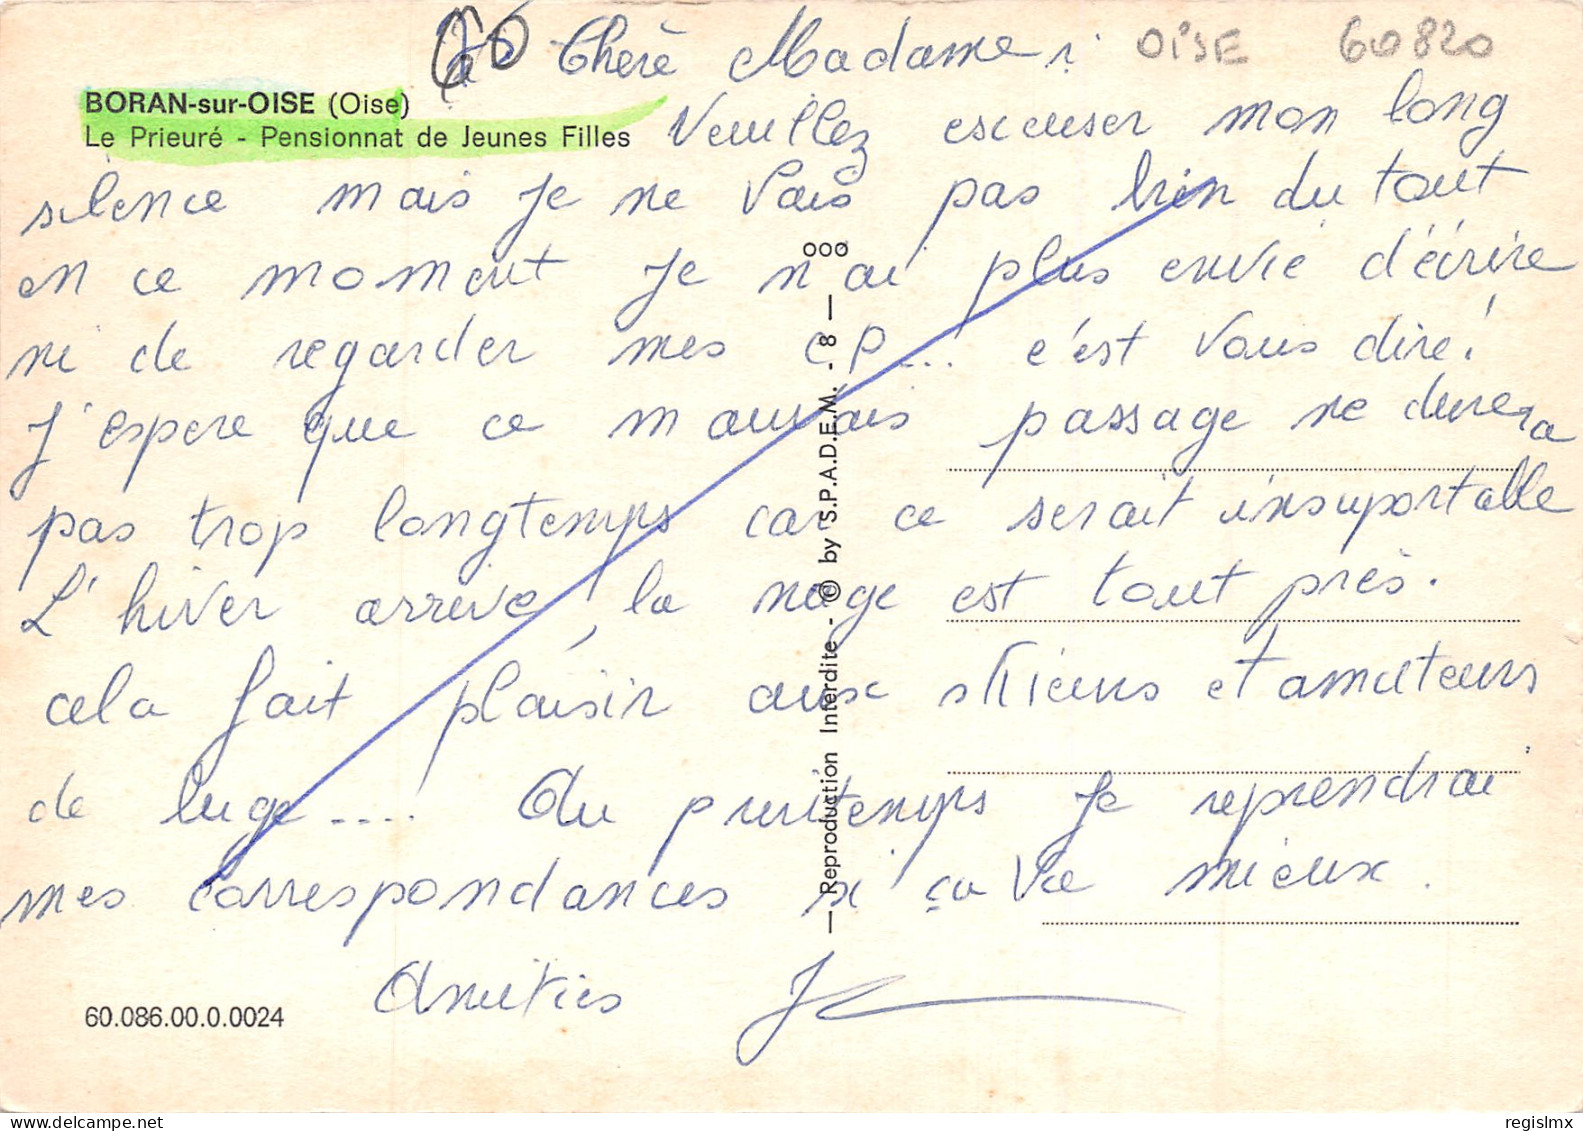 60 Chère Madame, OISE 60820
BORAN-sur-OISE (Oise)
Le Prieuré - Pensionnat de Jeunes Filles
Veuillez escuser mon long
silence mais je ne vais pas bien du tout
en ce moment je n'ai plus envie d'écrire
ni de regarder mes cp... c'est vous dire!
J'espere que ce mauvais passage ne durera
pas trop longtemps car ce serait insuportable
L'hiver arrive, la neige est tout près.
cela fait plaisir aux skieurs et amateurs
de luge.... Au printemps je reprendrai
mes correspondances si ça va mieux.
Amitiés
60.086.00.0.0024
ooo
— Reproduction Interdite - © by S.P.A.D.E.M. - 8 —
regislmx